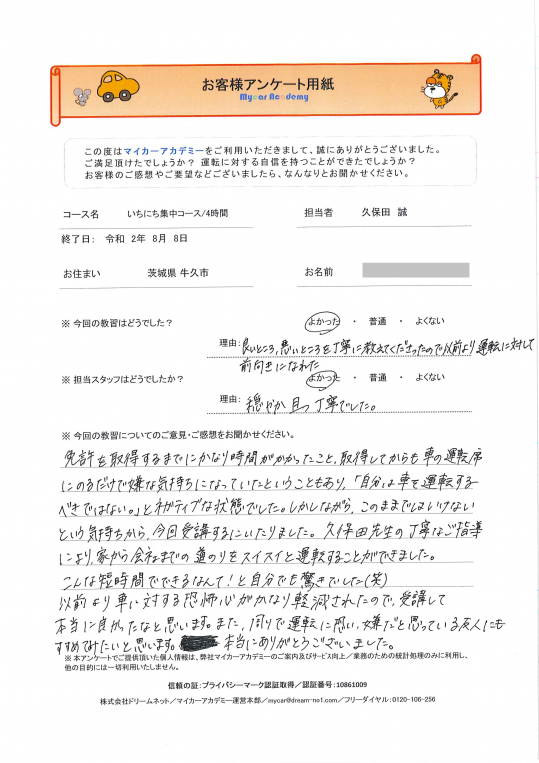 お客様アンケート用紙
Mycar Academy
この度はマイカーアカデミーをご利用いただきまして、誠にありがとうございました。
ご満足頂けたでしょうか? 運転に対する自信を持つことができたでしょうか?
お客様のご感想やご要望などございましたら、なんなりとお聞かせください。
コース名 いちにち集中コース/4時間 担当者 久保田 誠
終了日: 令和 2年 8月 8日
お住まい 茨城県 牛久市 お名前
※ 今回の教習はどうでした? よかった ・ 普通 ・ よくない
理由: 良いところ、悪いところを丁寧に教えてくださったので以前より運転に対して
前向きになれた
※ 担当スタッフはどうでしたか? よかった ・ 普通 ・ よくない
理由: 穏やか且つ丁寧でした。
※ 今回の教習についてのご意見・ご感想をお聞かせください。
免許を取得するまでにかなり時間がかかったこと、取得してからも車の運転席
にのるだけで嫌な気持ちになっていたということもあり、「自分は車を運転する
べきではない。」とネガティブな状態でした。しかしながら、このままではいけない
という気持ちから、今回受講するにいたりました。久保田先生の丁寧なご指導
により、家から会社までの道のりをスイスイと運転することができました。
こんな短時間でできるなんて!と自分でも驚きでした(笑)
以前より車に対する恐怖心がかなり軽減されたので、受講して
本当に良かったなと思います。また、周りで運転に悪い、嫌だと思っている友人にも
すすめてみたいと思います。本当にありがとうございました。
※ 本アンケートでご提供頂いた個人情報は、弊社マイカーアカデミーのご案内及びサービス向上/業務のための統計処理のみに利用し、
他の目的には一切利用いたしません。
信頼の証:プライバシーマーク認証取得/認証番号:10861009
株式会社ドリームネット/マイカーアカデミー運営本部/mycar@dream-no1.com/フリーダイヤル:0120-106-256